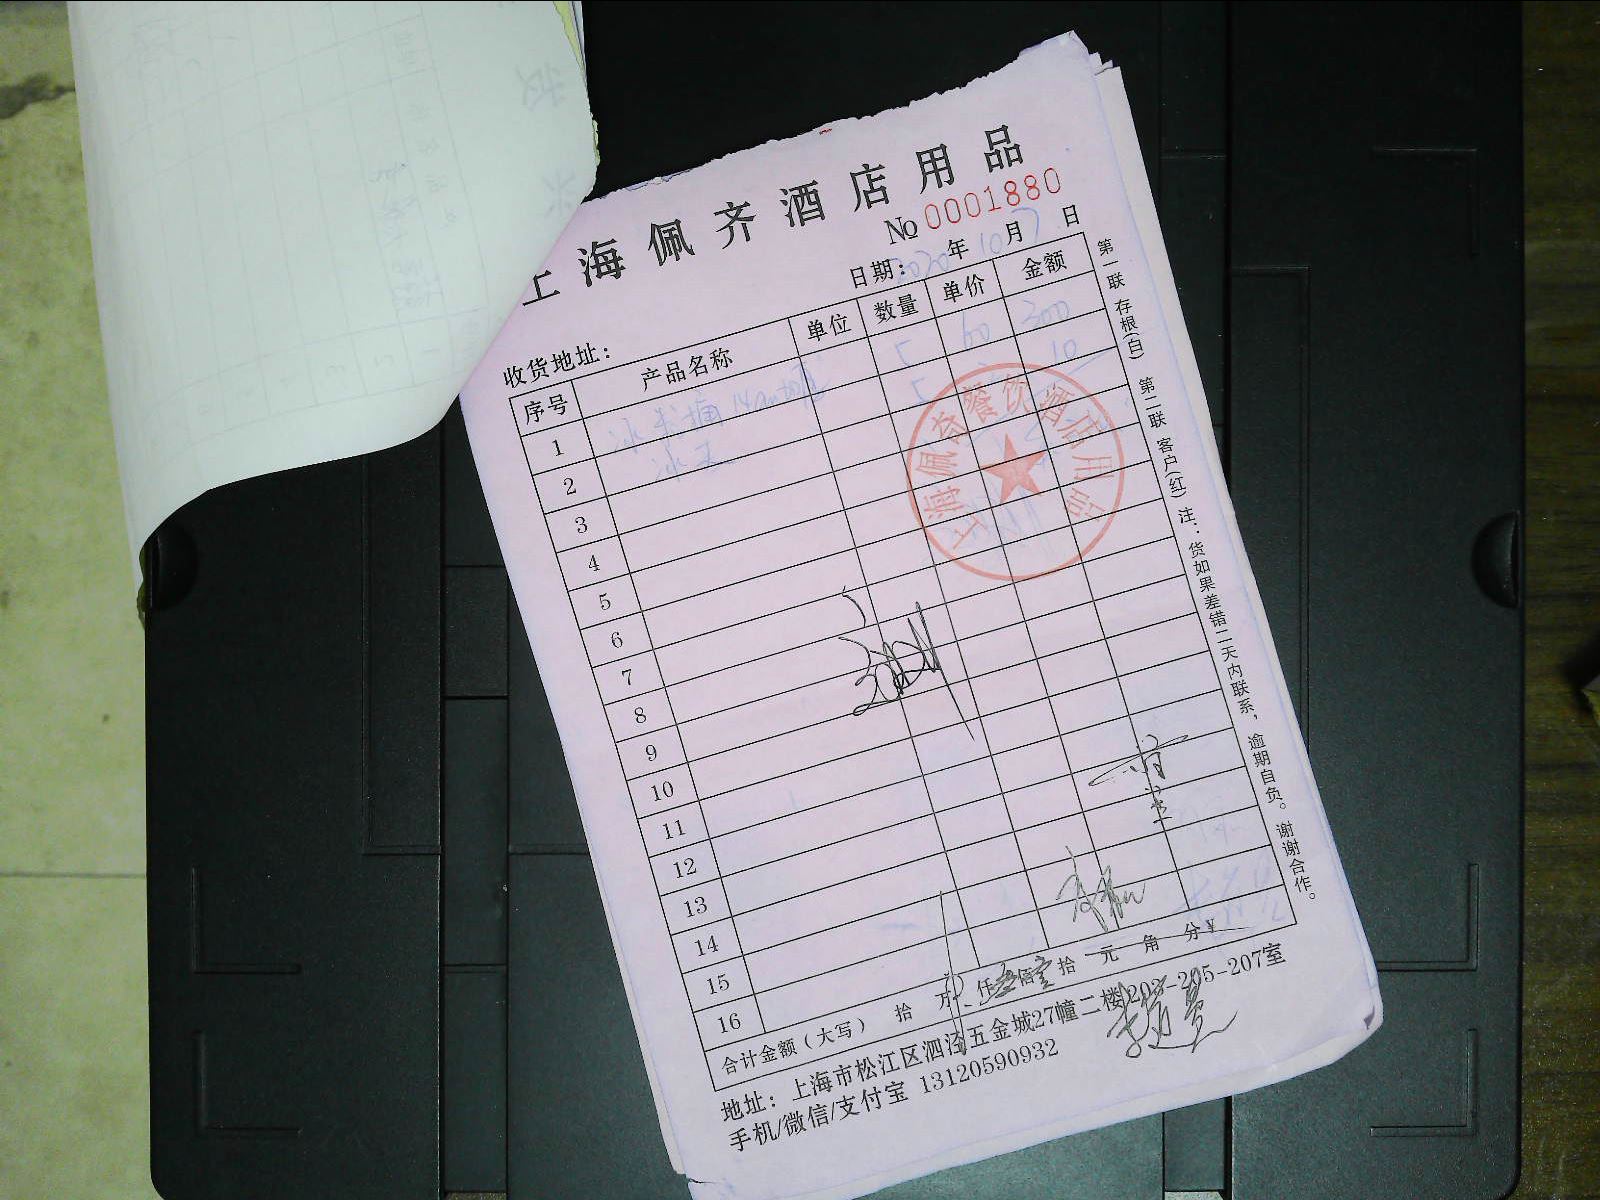 上海佩齐酒店用品
No 0001880
日期: 2020年10月7日
收货地址:
序号 产品名称 单位 数量 单价 金额
1 5 60 300
2 冰 5 10
3
4
5
6
7
8
9
10
11
12
13
14
15
16
合计金额(大写) 拾 万 仟 叁佰壹拾 元 角 分¥
地址: 上海市松江区泗泾五金城27幢二楼203-205-207室
手机/微信/支付宝 13120590932
第一联 存根(白) 第二联 客户(红) 注: 货如果差错二天内联系, 逾期自负。谢谢合作。
上海佩奇餐饮酒店用品